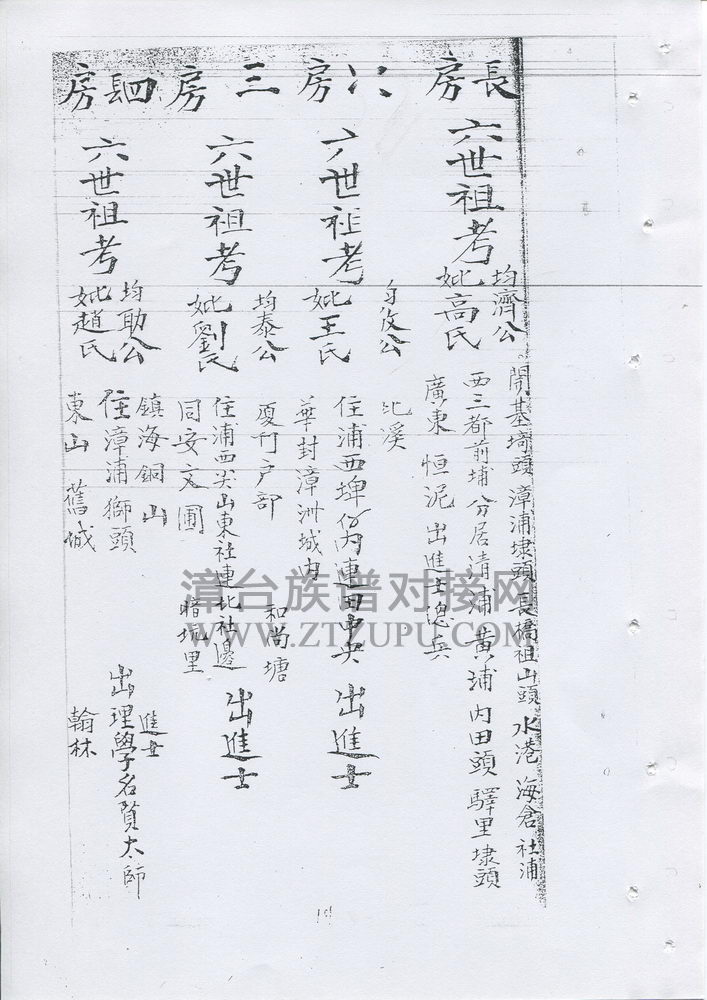 長房
六世祖考
均濟公
妣高氏
開基埼頭 漳浦埭頭 長橋祖山頭 水港 海倉 社浦
西三都前埔分居清浦 黃埔 內田頭 驛里埭頭
廣東 恒泥 出進士總兵
房
世祖考
公
妣王氏
北溪
住浦西埤仔內連田中央 出進士
華封漳洲城內
三房
六世祖考
均泰公
妣劉氏
廈門戶部 和尚塘
住浦西尖山東社連北社邊 出進士
同安文圃 暗坑里
四房
六世祖考
均助公
妣趙氏
鎮海銅山 進士
住漳浦獅頭 出理學名賢太師
東山舊城 翰林
漳台族谱对接网
WWW.ZTZUPU.COM